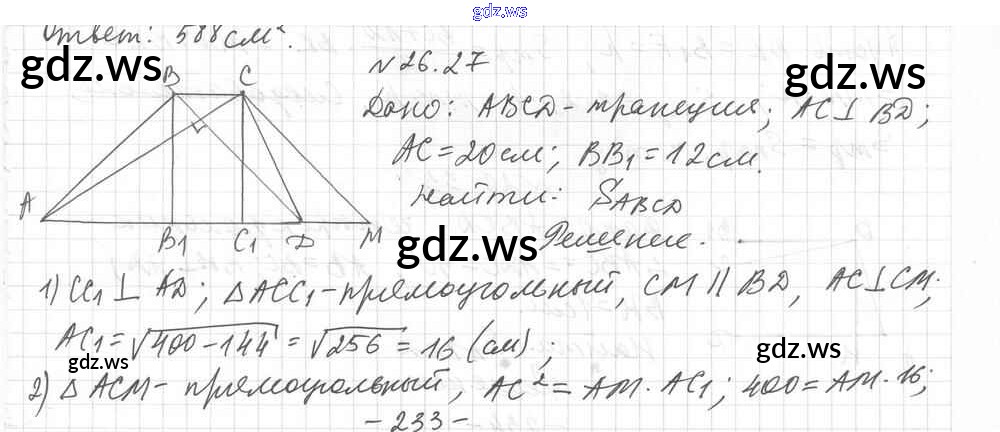 gdz.ws
Ответ: 588 см².
gdz.ws
№26.27
gdz.ws
B C
Дано: ABCD - трапеция; AC⊥BD;
AC=20см; BB1=12см.
Найти: SABCD
A
B1 C1 D M
gdz.ws
Решение.
1) CC1⊥AD; ΔACC1-прямоугольный, CM||BD, AC⊥CM;
AC1=√400-144=√256=16(см);
gdz.ws
gdz.ws
2) ΔACM-прямоугольный, AC²=AM·AC1; 400=AM·16;
-233-